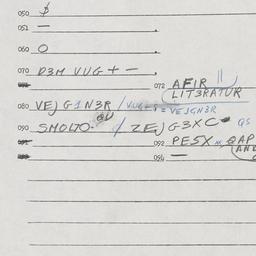 050 $
051 —
060 O
070 D3M VUG + —
072 AFIR
LIT3RATUR
080 VEJ G1N3R / VUG-1 = VEJGN3R
090 SMOLTO- / ZEJ G3XC QS
092 PE5X QAP
096 —